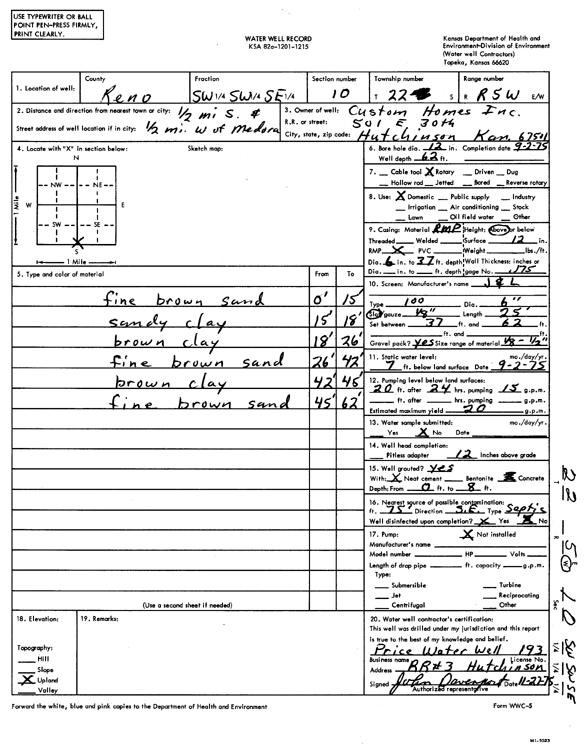 USE TYPEWRITER OR BALL
POINT PEN-PRESS FIRMLY,
PRINT CLEARLY.
WATER WELL RECORD
KSA 82a-1201-1215
Kansas Department of Health and
Environment-Division of Environment
(Water well Contractors)
Topeka, Kansas 66620
1. Location of well:
County
Reno
Fraction
SW 1/4 SW 1/4 SE 1/4
Section number
10
Township number
T 22 S
Range number
R R5W E/W
2. Distance and direction from nearest town or city: 1/2 mi S. &
Street address of well location if in city: 1/2 mi. W of Medora
3. Owner of well: Custom Homes Inc.
R.R. or street: 501 E 30th
City, state, zip code: Hutchinson Kan. 67501
4. Locate with "X" in section below:
Sketch map:
N
NW NE
W E
SW SE
X
S
1 Mile
1 Mile
6. Bore hole dia. 12 in. Completion date 9-2-75
Well depth 62 ft.
7. Cable tool X Rotary Driven Dug
Hollow rod Jetted Bored Reverse rotary
8. Use: X Domestic Public supply Industry
Irrigation Air conditioning Stock
Lawn Oil field water Other
9. Casing: Material RMP Height: Above or below
Threaded Welded Surface 12 in.
RMP X PVC Weight lbs./ft.
Dia. 6 in. to 37 ft. depth Wall Thickness: inches or
Dia. in. to ft. depth gage No. .175
10. Screen: Manufacturer's name J & L
Type 100 Dia. 6"
Slot/gauze 1/8" Length 25'
Set between 37 ft. and 62 ft.
ft. and ft.
Gravel pack? yes Size range of material 1/8 - 1/2"
5. Type and color of material
From To
fine brown sand 0' 15'
sandy clay 15' 18'
brown clay 18' 26'
fine brown sand 26' 42'
brown clay 42' 45'
fine brown sand 45' 62'
(Use a second sheet if needed)
11. Static water level: mo./day/yr.
7 ft. below land surface Date 9-2-75
12. Pumping level below land surfaces:
20 ft. after 24 hrs. pumping 15 g.p.m.
ft. after hrs. pumping g.p.m.
Estimated maximum yield 20 g.p.m.
13. Water sample submitted: mo./day/yr.
Yes X No Date
14. Well head completion:
Pitless adapter 12 Inches above grade
15. Well grouted? yes
With: X Neat cement Bentonite Concrete
Depth: From 0 ft. to 8 ft.
16. Nearest source of possible contamination:
ft. 75' Direction S.E. Type Septic
Well disinfected upon completion? X Yes No
17. Pump: X Not installed
Manufacturer's name
Model number HP Volts
Length of drop pipe ft. capacity g.p.m.
Type:
Submersible Turbine
Jet Reciprocating
Centrifugal Other
18. Elevation:
Topography:
Hill
Slope
X Upland
Valley
19. Remarks:
20. Water well contractor's certification:
This well was drilled under my jurisdiction and this report
is true to the best of my knowledge and belief.
Price Water Well 193
Business name License No.
Address RR#3 Hutchinson
Signed John Davenport Date 11-22-75
Authorized representative
T 22 S
R 5 E W
Sec 10
SW SW SE
1/4 1/4 1/4
Forward the white, blue and pink copies to the Department of Health and Environment
Form WWC-5